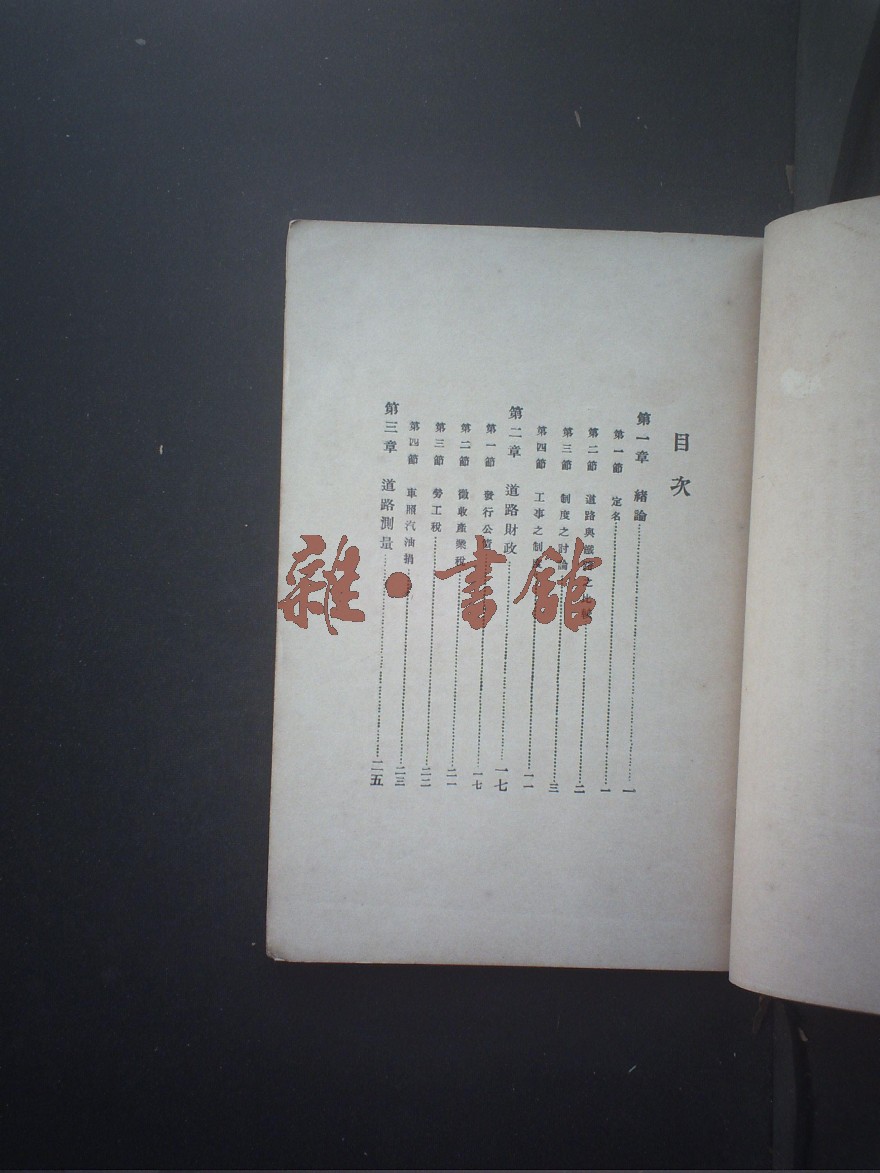 目次
第一章 緒論 一
第一節 定名 一
第二節 道路與鐵路之 二
第三節 制度之討論 三
第四節 工事之制 一一
第二章 道路財政 一七
第一節 發行公 一七
第二節 徵收產業稅 二一
第三節 勞工稅 二二
第四節 車照汽油捐 二三
第三章 道路測量 二五
雜·書館